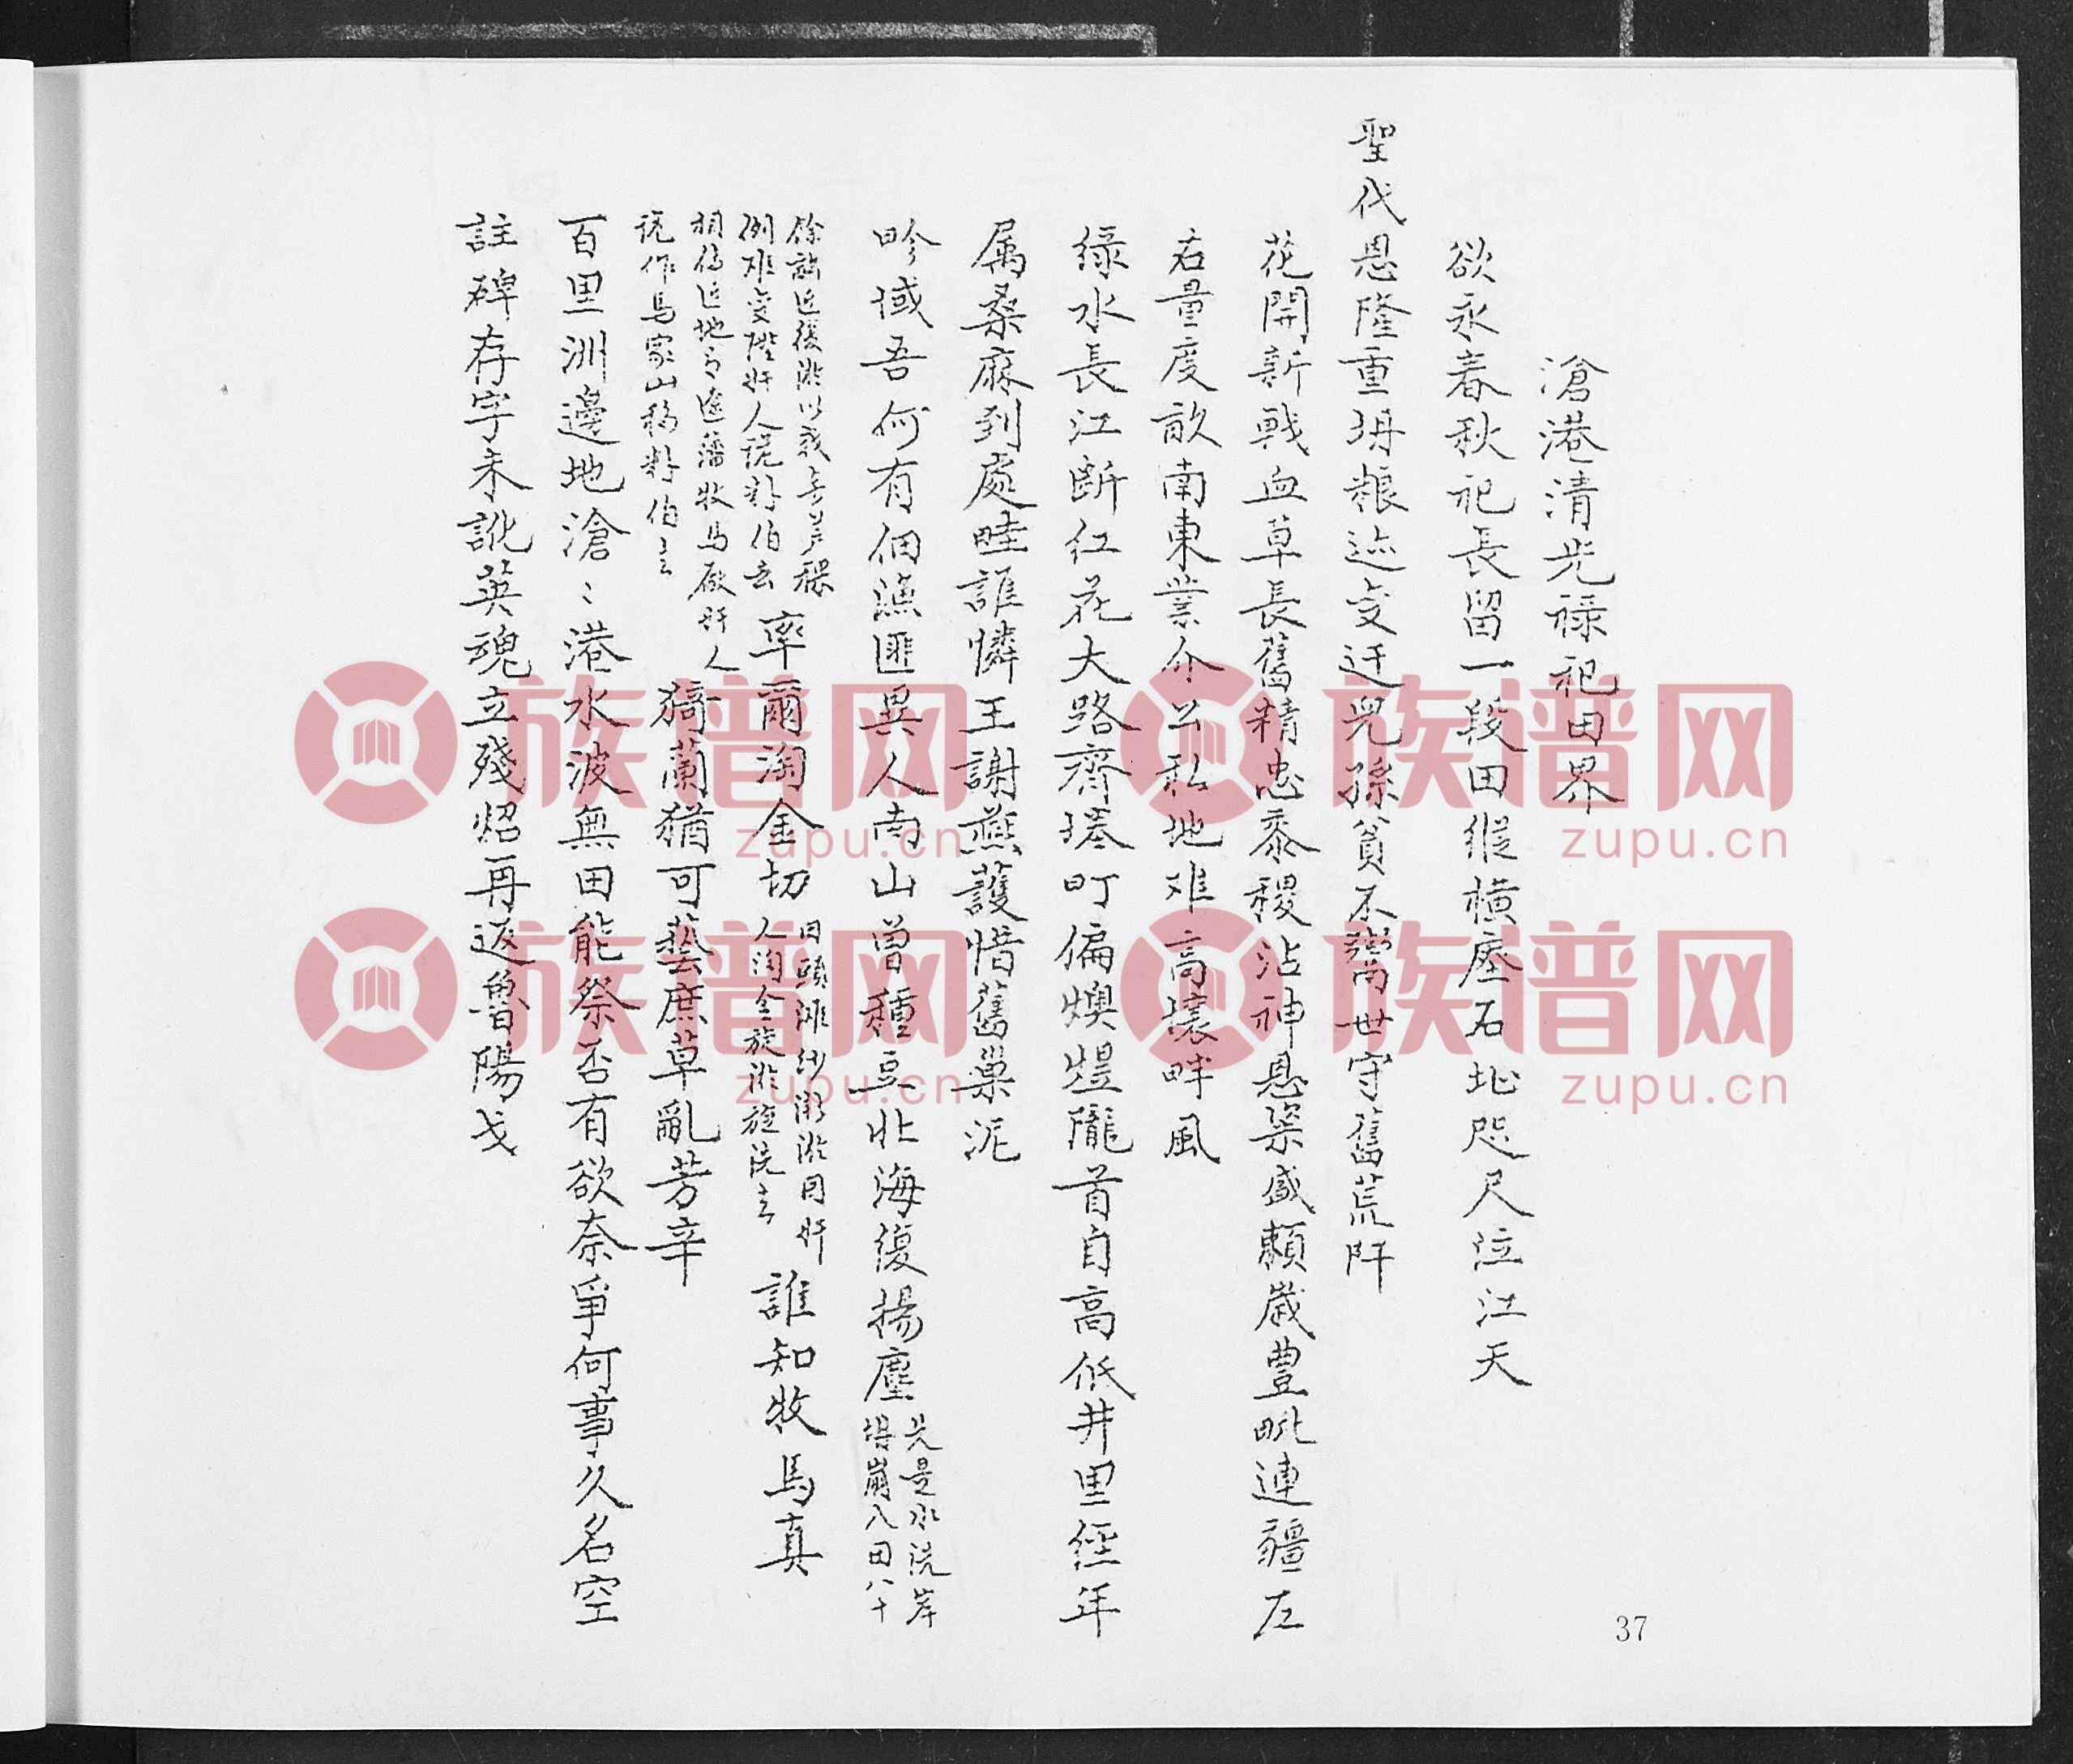 滄港清光祿祀田界
欲永春秋祀長留一段田縱横塵石址咫尺泣江天
聖代恩隆重坍粮迹变迁兒孫貧不鬻世守舊荒阡
花開新戰血草長舊精忠黍稷沾神惠粢盛頼歲豊毗連疆左
右量度畝南東業分公私地难高壤畔風
绿水長江断红花大路齊塔町偏燠煌隴首自高低井里经年
属桑麻到處畦誰憐王謝燕護惜舊巢泥
畛域吾何有佃漁匪異人南山曾種豆北海復揚塵
先是水洗岸
塌崩入田八十
餘訪近復淤以我
例难变陞奸人说對伯玄
率爾淘金切
田頭淮沙淤同奸
人淘金旋淤旋洗玄
誰知牧馬真
相傳近地有遼藩牧馬廠奸人
说作馬家山稿對伯玄
猗蘭猶可藝庶草亂芳辛
百里洲邊地滄〻港水波無田能祭否有欲奈爭何事久名空
註碑存字未訛英魂立殘炤再返魯陽戈
37
族谱网
zupu.cn
族谱网
zupu.cn
族谱网
zupu.cn
族谱网
zupu.cn